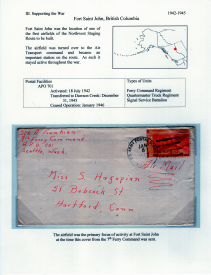 III. Supporting the War
1942-1945
Fort Saint John, British Columbia
Fort Saint John was the location of one of the first airfields of the Northwest Staging Route to be built.
The airfield was turned over to the Air Transport command and became an important station on the route. As such it stayed active throughout the war.
Postal Facilities
APO 701
Activated: 18 July 1942
Transferred to Dawson Creek: December 31, 1945
Ceased Operation: January 1946
Types of Units
Ferry Command Regiment
Quartermaster Truck Regiment
Signal Service Battalion
Ferry Command
Seattle Wash.
Air Mail
Miss S. Hagopian
51 Babcock St
Hartford Conn
The airfield was the primary focus of activity at Fort Saint John
at the time this cover from the 7th Ferry Command was sent.